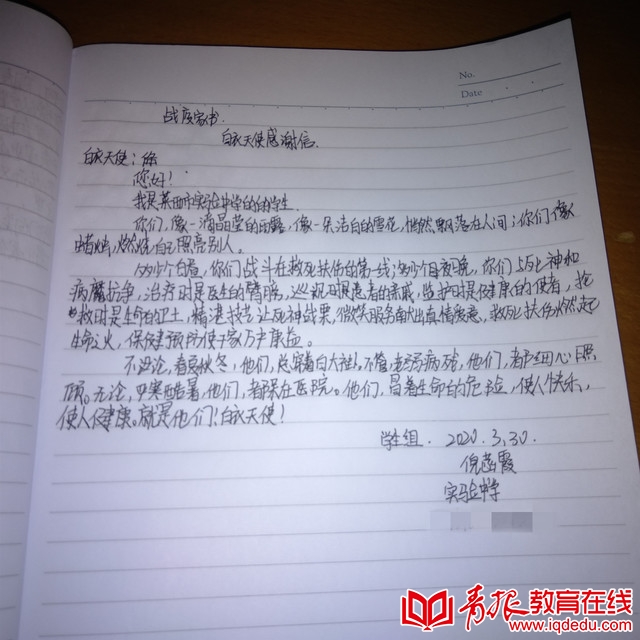 No.
Date
战疫家书.
白衣天使感谢信.
白衣天使:
您好!
我是莱西市实验中学的的学生.
你们,像一滴晶莹的雨露,像一朵洁白的雪花,悄然飘落在人间;你们像
蜡烛,燃烧自己照亮别人。
多少个白昼,你们战斗在救死扶伤的第一线;多少个日夜晚,你们与死神和
病魔抗争,治疗时是医生的臂膀,巡视时是患者的亲戚,监护时是健康的使者,抢
救时是生命的卫士,精湛技艺让死神战栗,微笑服务献出真情爱意,救死扶伤燃起
生命之火,保健预防使千家万户康益。
不论,春夏秋冬,他们,总穿着白大褂。不管,老弱病残,他们,都细心照
顾。无论,严寒酷暑他们,都呆在医院。他们,冒着生命的危险,使人快乐,
使人健康。就是他们!白衣天使!
学生组. 2020.3.30.
倪菡霞
实验中学
青报教育在线
www.iqdedu.com